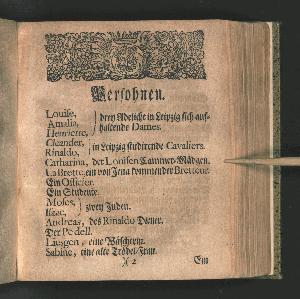 Persohnen.
Louise,
Amalia, drey Adeliche in Leipzig sich auf-
Henriette, haltende Dames.
Cleander, in Leipzig studirende Cavaliers.
Rinaldo,
Catharina, der Louisen Cammer-Mädgen.
La Brette, ein von Jena kommender Bretteur.
Ein Officier.
Ein Studente.
Moses, zwey Juden.
Isaac,
Andreas, des Rinaldo Diener.
Der Pedell.
Liesgen, eine Wäscherin.
Sabine, eine alte Trödel-Frau.
A 2 Ein